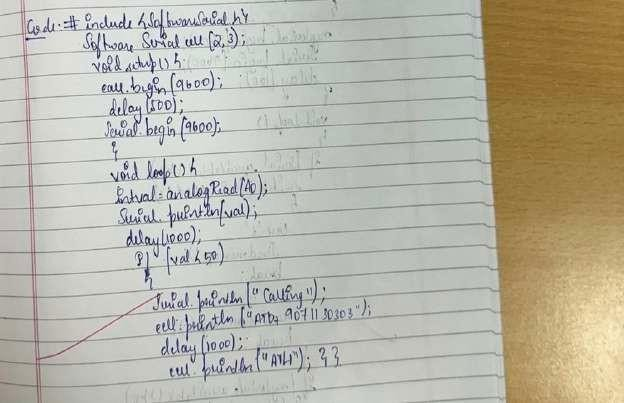 Code:- # include <SoftwareSerial.h>
Software Serial cell (2,3);
void setup() {
cell.begin (9600);
delay(500);
Serial.begin (9600);
}
void loop() {
int val = analogRead (A0);
Serial.println(val);
delay(1000);
if (val < 50)
{
Serial.println ("Calling");
cell.println ("ATD+ 9071130303");
delay(1000);
cell.println ("ATH"); } }